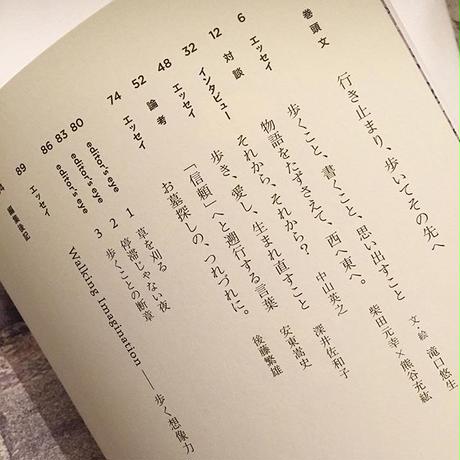 巻頭文 行き止まり、歩いてその先へ
6 エッセイ 歩くこと、書くこと、思い出すこと 文・絵 滝口悠生
12 対談 物語をたずさえて、西へ東へ。 柴田元幸×熊谷充紘
32 インタビュー それから、それから? 中山英之
48 エッセイ 歩き、愛し、生まれ直すこと 深井佐和子
52 論考 「信頼」へと遡行する言葉 安東嵩史
74 エッセイ お墓探しの、つれづれに。 後藤繁雄
80 editor's eye 1 草を刈る
83 editor's eye 2 停滞じゃない夜
86 editor's eye 3 歩くことの断章
89 エッセイ Walking Imagination ── 歩く想像力
編集後記